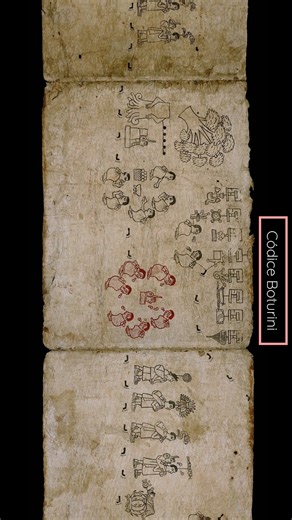 Códice Boturini